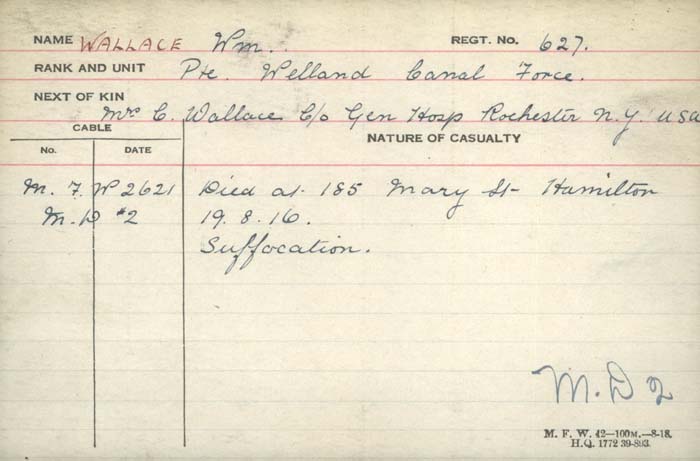 NAME WALLACE Wm. REGT. No. 627.
RANK AND UNIT Pte. Welland Canal Force.
NEXT OF KIN
Mrs C. Wallace C/o Gen Hosp Rochester N.Y. USA
CABLE
NATURE OF CASUALTY
No. DATE
M. F. W 2621 Died at 185 Mary St- Hamilton
M. D #2 19.8.16.
Suffocation.
M. D 2
M. F. W. 42—100M.—8-18.
H.Q. 1772 39-893.